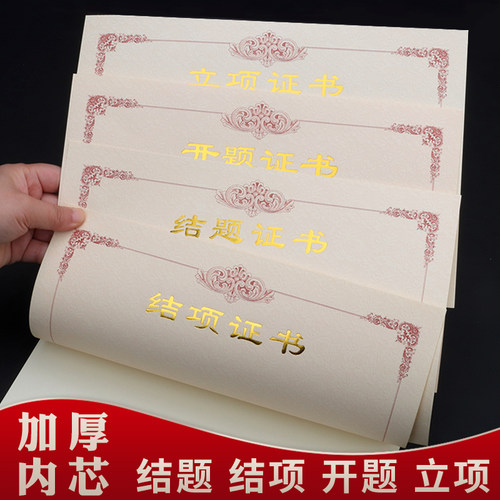 立项证书
开题证书
结题证书
结项证书
加厚
内芯
结题 结项 开题 立项